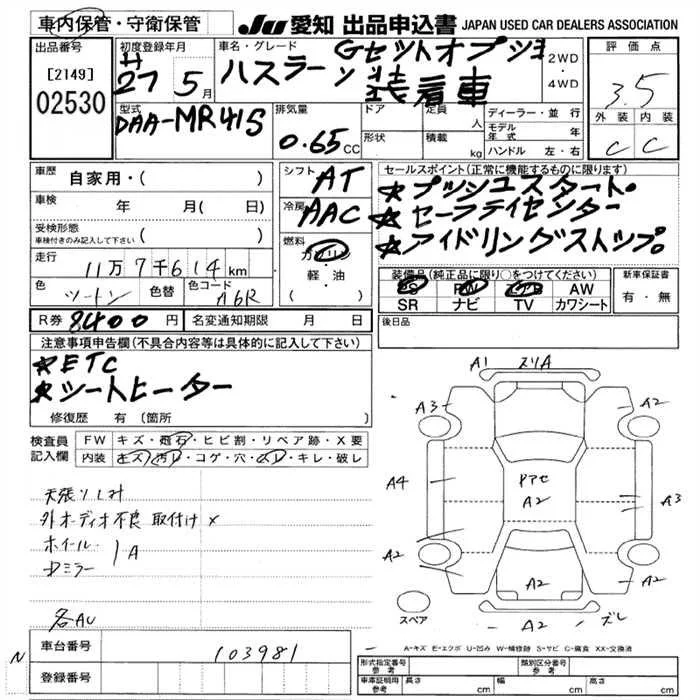 車内保管・守衛保管
JU 愛知 出品申込書 JAPAN USED CAR DEALERS ASSOCIATION
出品番号
[2149]
02530
初度登録年月
H
27 5月
車名・グレード
Gセットオプション
ハスラー
装着車
2WD
・
4WD
評価点
3.5
外装 内装
C C
型式
DAA-MR41S
排気量
0.65CC
ドア
形状
定員
人
積載
kg
ディーラー・並行
モデル年式 年
ハンドル 左・右
車歴
自家用・( )
車検 年 月(日 )
受検形態
車検付きのみ記入して下さい ( )
走行
11万7千614km
色
ツートン
色替
色コード
A6R
シフト
AT
冷房
AAC
燃料
ガソリン
軽・油
( )
セールスポイント(正常に機能するものに限ります)
★プッシュスタート。
★セーフティセンター
★アイドリングストップ。
装備品(純正品に限り○をつけてください)
PS PW AB AW
SR ナビ TV カワシート
新車保証書
有・無
R券 8400円 名変通知期限 月 日
後日品
注意事項申告欄(不具合内容等は具体的に記入して下さい)
★ETC
★シートヒーター
修復歴 有(箇所 )
検査員記入欄
FW キズ・飛石・ヒビ割・リペア跡・X要
内装 キズ・汚レ・コゲ・穴・ムレ・キレ・破レ
天張りしみ
外オーディオ不良 取付け×
ホイール
ドミラー
A
各AU
A1 スリA
A3
A2
A4
ドアセ
A2
A3
A2
A2
A2
A2 ズレ
スペア
A-キズ E-エクボ U-凹み W-補修跡 S-サビ C-腐食 XX-交換済
N
車台番号 103981
登録番号
形式指定番号
参考
類別区分番号
参考
車庫証明用
参考
長さ cm
幅 cm
高さ cm